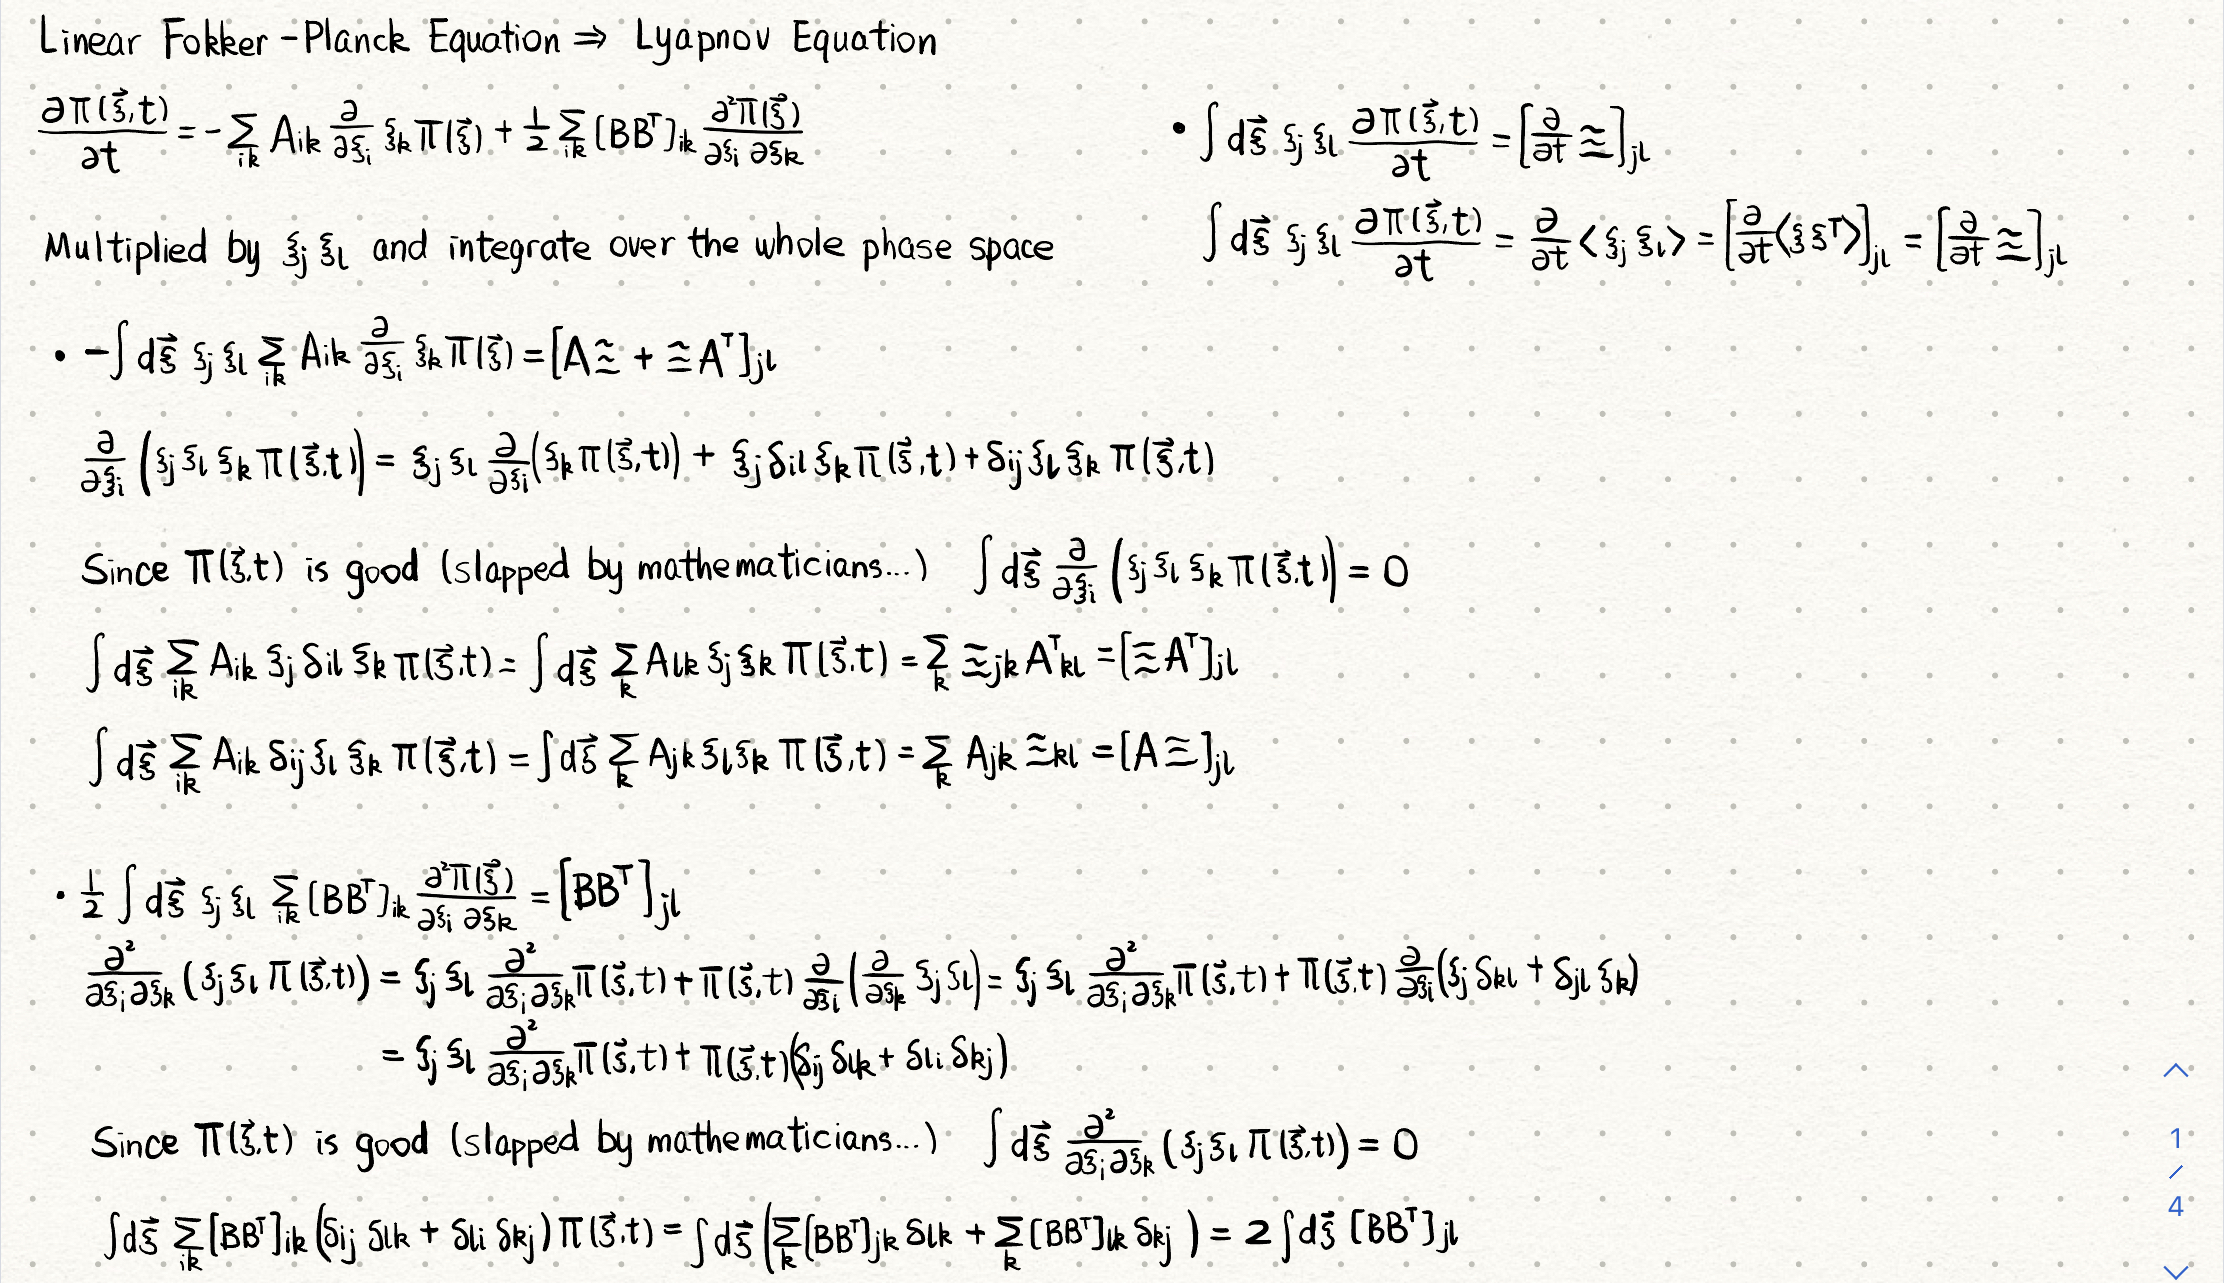 Linear Fokker-Planck Equation ⇒ Lyapnov Equation
∂π(ξ⃗,t)/∂t = -∑_{ik} A_{ik} ∂/∂ξ_i ξ_k π(ξ⃗) + 1/2 ∑_{ik} [BB^T]_{ik} ∂²π(ξ⃗)/∂ξ_i ∂ξ_k
Multiplied by ξ_j ξ_l and integrate over the whole phase space
• -∫dξ⃗ ξ_j ξ_l ∑_{ik} A_{ik} ∂/∂ξ_i ξ_k π(ξ⃗) = [AΞ + ΞA^T]_{jl}
∂/∂ξ_i (ξ_j ξ_l ξ_k π(ξ⃗,t)) = ξ_j ξ_l ∂/∂ξ_i (ξ_k π(ξ⃗,t)) + ξ_j δ_{il} ξ_k π(ξ⃗,t) + δ_{ij} ξ_l ξ_k π(ξ⃗,t)
Since π(ξ⃗,t) is good (slapped by mathematicians...) ∫dξ⃗ ∂/∂ξ_i (ξ_j ξ_l ξ_k π(ξ⃗,t)) = 0
∫dξ⃗ ∑_{ik} A_{ik} ξ_j δ_{il} ξ_k π(ξ⃗,t) = ∫dξ⃗ ∑_k A_{lk} ξ_j ξ_k π(ξ⃗,t) = ∑_k Ξ_{jk} A^T_{kl} = [ΞA^T]_{jl}
∫dξ⃗ ∑_{ik} A_{ik} δ_{ij} ξ_l ξ_k π(ξ⃗,t) = ∫dξ⃗ ∑_k A_{jk} ξ_l ξ_k π(ξ⃗,t) = ∑_k A_{jk} Ξ_{kl} = [AΞ]_{jl}
• 1/2 ∫dξ⃗ ξ_j ξ_l ∑_{ik} [BB^T]_{ik} ∂²π(ξ⃗)/∂ξ_i ∂ξ_k = [BB^T]_{jl}
∂²/∂ξ_i∂ξ_k (ξ_j ξ_l π(ξ⃗,t)) = ξ_j ξ_l ∂²/∂ξ_i∂ξ_k π(ξ⃗,t) + π(ξ⃗,t) ∂/∂ξ_i (∂/∂ξ_k ξ_j ξ_l) = ξ_j ξ_l ∂²/∂ξ_i∂ξ_k π(ξ⃗,t) + π(ξ⃗,t) ∂/∂ξ_i (ξ_j δ_{kl} + δ_{jl} ξ_k)
= ξ_j ξ_l ∂²/∂ξ_i∂ξ_k π(ξ⃗,t) + π(ξ⃗,t)(δ_{ij} δ_{lk} + δ_{li} δ_{kj})
Since π(ξ⃗,t) is good (slapped by mathematicians...) ∫dξ⃗ ∂²/∂ξ_i∂ξ_k (ξ_j ξ_l π(ξ⃗,t)) = 0
∫dξ⃗ ∑_{ik} [BB^T]_{ik} (δ_{ij} δ_{lk} + δ_{li} δ_{kj}) π(ξ⃗,t) = ∫dξ⃗ (∑_k [BB^T]_{jk} δ_{lk} + ∑_k [BB^T]_{lk} δ_{kj}) = 2∫dξ⃗ [BB^T]_{jl}
• ∫dξ⃗ ξ_j ξ_l ∂π(ξ⃗,t)/∂t = [∂/∂t Ξ]_{jl}
∫dξ⃗ ξ_j ξ_l ∂π(ξ⃗,t)/∂t = ∂/∂t <ξ_j ξ_l> = [∂/∂t <ξ ξ^T>]_{jl} = [∂/∂t Ξ]_{jl}
1
/
4